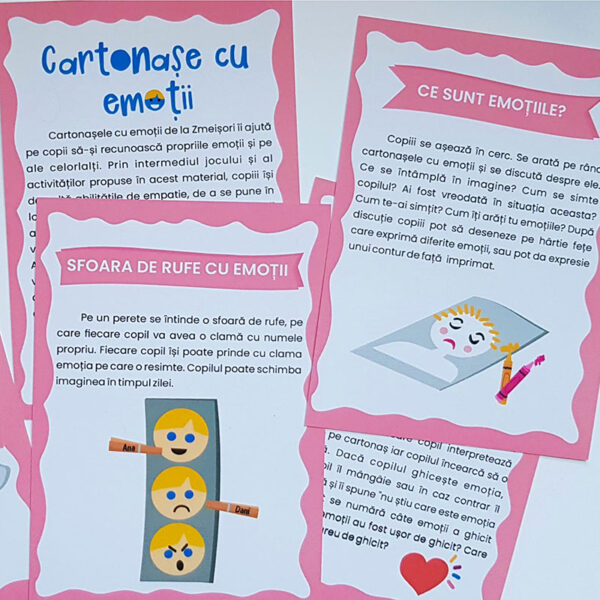 Cartonașe cu
emoții
Cartonașele cu emoții de la Zmeișori îi ajută
pe copii să-și recunoască propriile emoții și pe
ale celorlalți. Prin intermediul jocului și al
activităților propuse în acest material, copiii își
abilitățile de empatie, de a se pune în
CE SUNT EMOȚIILE?
Copiii se așează în cerc. Se arată pe rând
cartonașele cu emoții și se discută despre ele.
Ce se întâmplă în imagine? Cum se simte
copilul? Ai fost vreodată în situația aceasta?
Cum te-ai simțit? Cum îți arăți tu emoțiile? După
discuție copiii pot să deseneze pe hârtie fețe
care exprimă diferite emoții, sau pot da expresie
unui contur de față imprimat.
SFOARA DE RUFE CU EMOȚII
Pe un perete se întinde o sfoară de rufe, pe
care fiecare copil va avea o clamă cu numele
propriu. Fiecare copil își poate prinde cu clama
emoția pe care o resimte. Copilul poate schimba
imaginea în timpul zilei.
Ana
Dani
care copil interpretează
pe cartonaș iar copilul încearcă să o
Dacă copilul ghicește emoția,
îl mângâie sau în caz contrar îl
și îi spune "nu știu care este emoția
se numără câte emoții a ghicit
emoții au fost ușor de ghicit? Care
greu de ghicit?